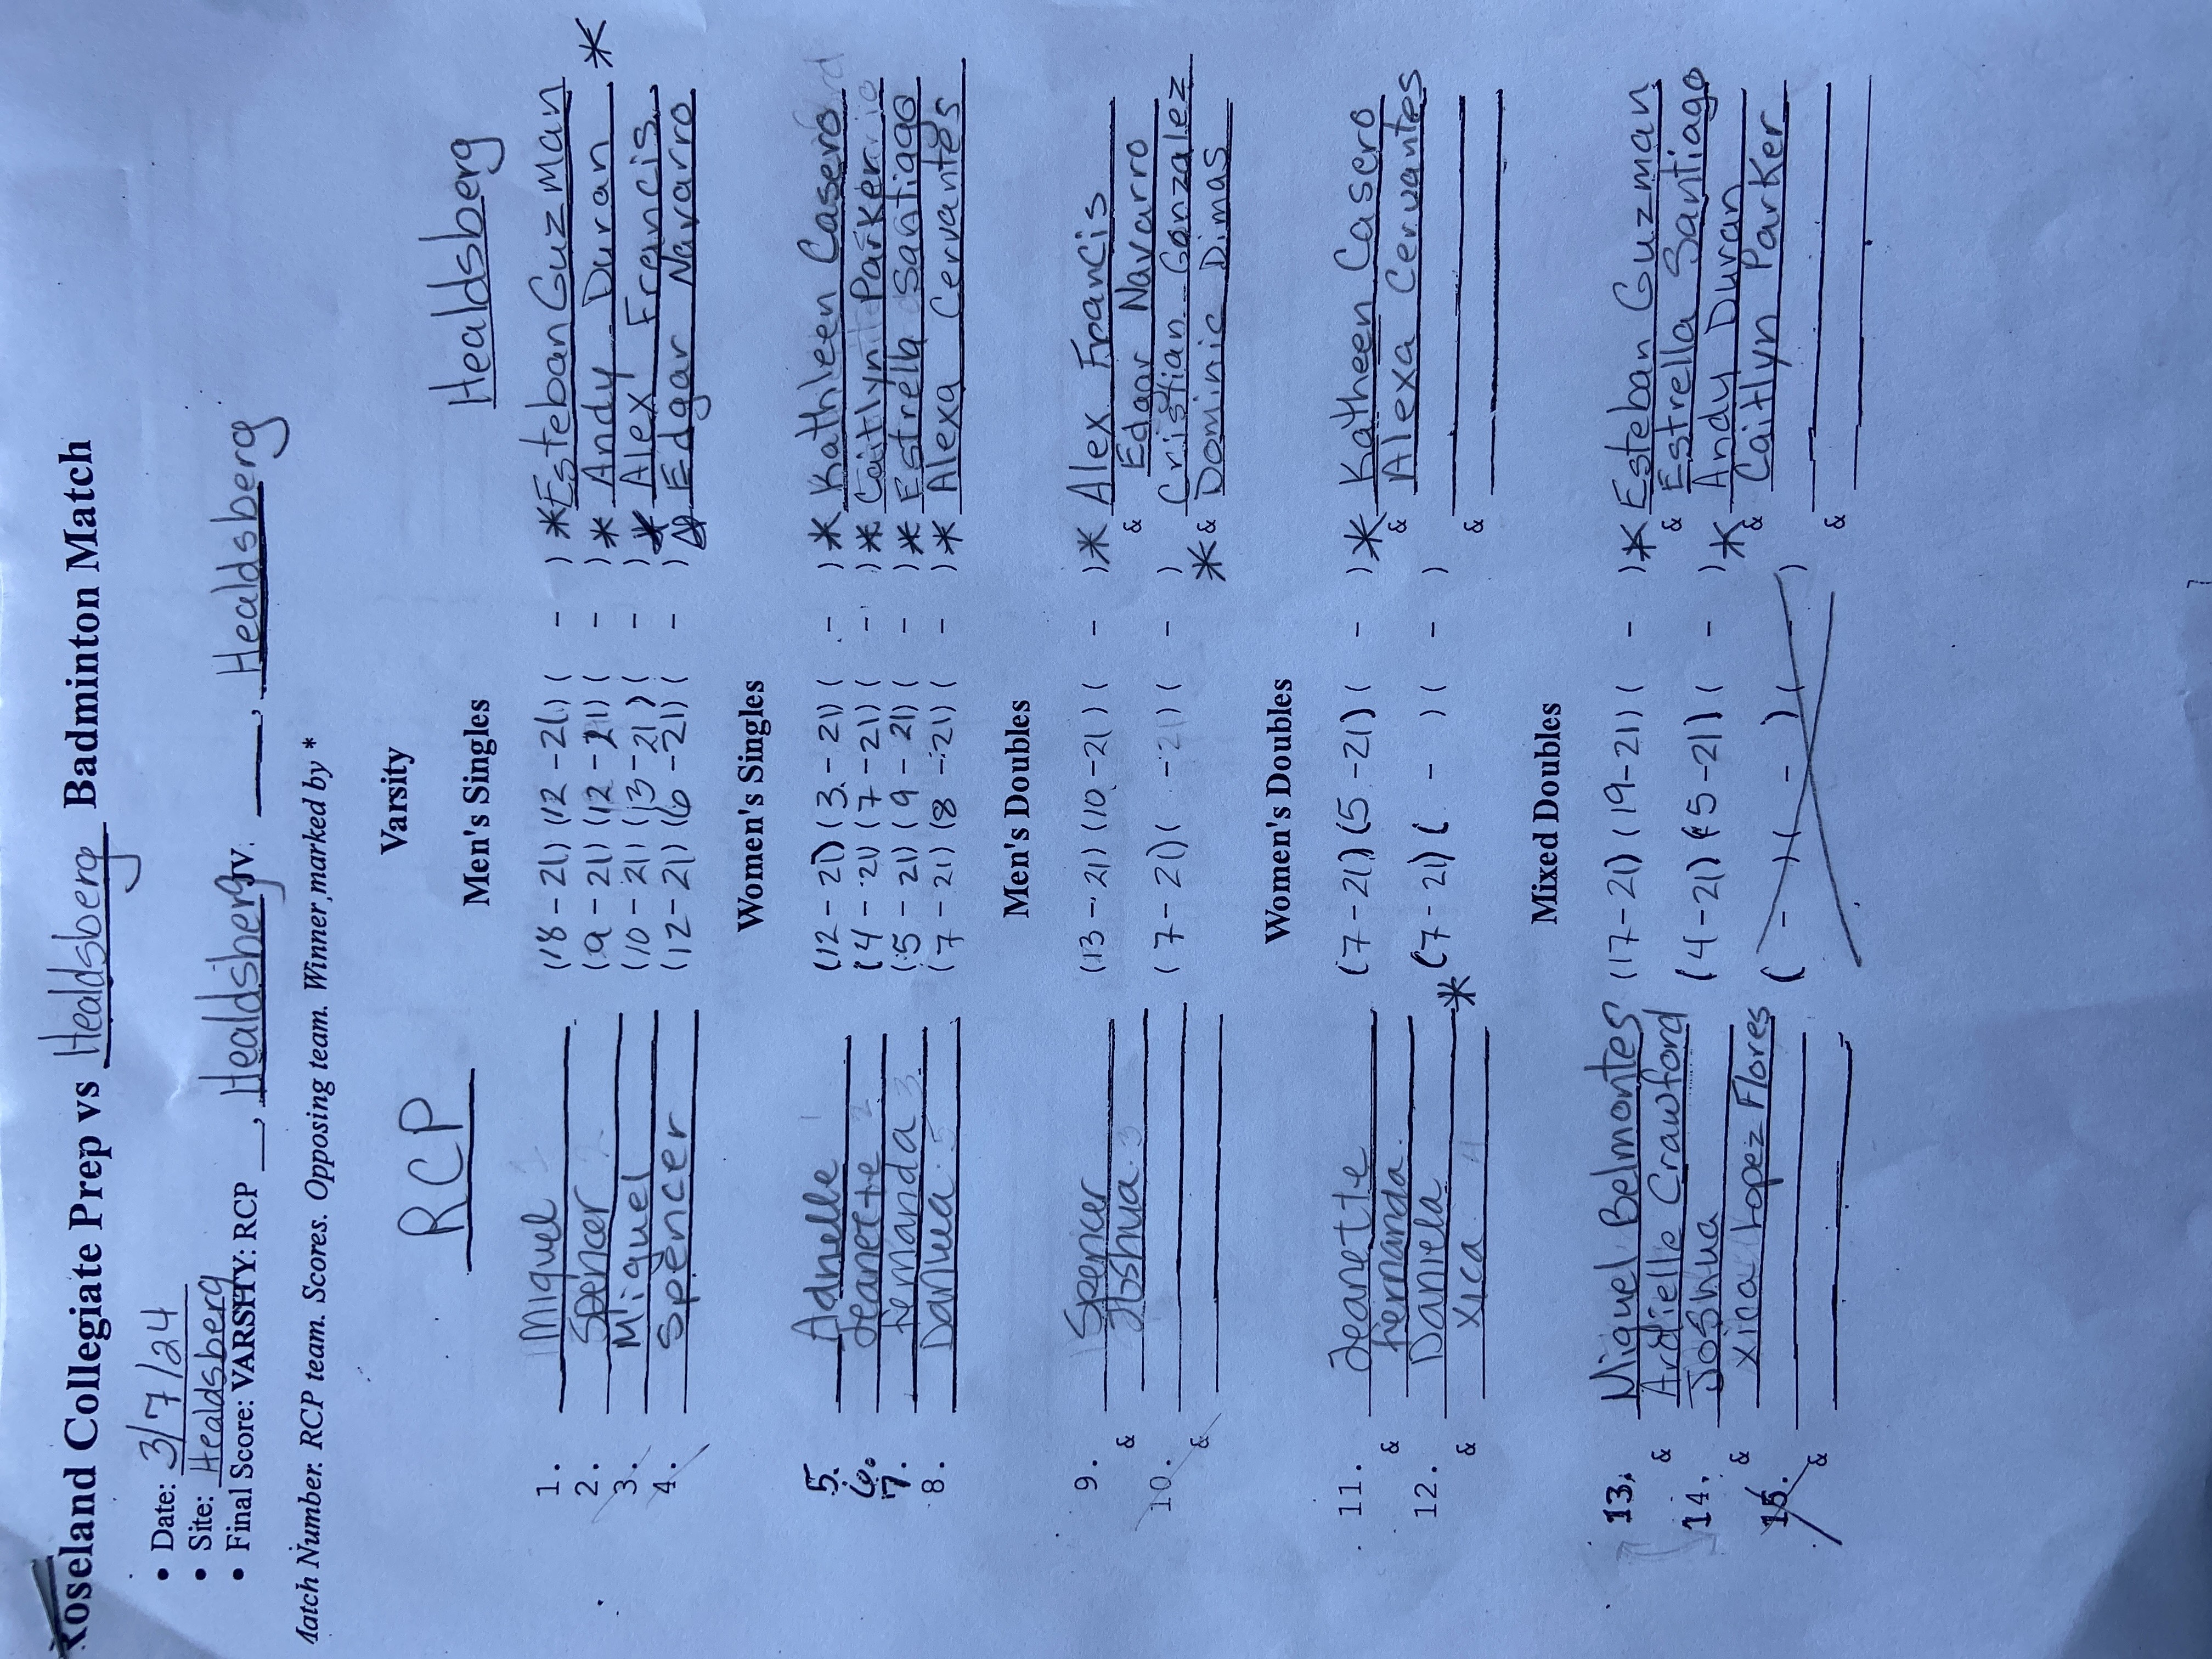 Roseland Collegiate Prep vs Healdsberg Badminton Match
• Date: 3/7/24
• Site: Healdsberg
• Final Score: VARSITY: RCP __, Healdsberg JV: ____, Healdsberg
Match Number. RCP team. Scores. Opposing team. Winner marked by *
Varsity
RCP Healdsberg
Men's Singles
1. Miguel (18-21) (12-21) ( - ) *Esteban Guzman
2. Spencer (9-21) (12-21) ( - ) * Andy Duran *
3. Miguel (10-21) (13-21) ( - ) * Alex Francis
4. Spencer (12-21) (6-21) ( - ) Edgar Navarro
Women's Singles
5. (12-21) (3-21) ( - ) * Kathleen Casero
6. Jeanette (4-21) (7-21) ( - ) * Caitlyn Parker
7. Fernanda (5-21) (9-21) ( - ) * Estrella Santiago
8. (7-21) (8-21) ( - ) * Alexa Cervantes
Men's Doubles
9. Spencer (13-21) (10-21) ( - ) * Alex Francis
& Joshua & Edgar Navarro
10. (7-21) ( -21) ( - ) Cristian Gonzalez
& * & Dominic Dimas
Women's Doubles
11. Jeanette (7-21) (5-21) ( - ) * Katheen Casero
& Fernanda & Alexa Cervantes
12. Daniela * (7-21) ( - ) ( - )
& Xica &
Mixed Doubles
13. Miguel Belmontes (17-21) (19-21) ( - ) * Esteban Guzman
& Ardielle Crawford & Estrella Santiago
14. Joshua (4-21) (5-21) ( - ) * Andy Duran
& Xica Lopez Flores & Caitlyn Parker
15. ( - ) ( - ) ( - )
& &